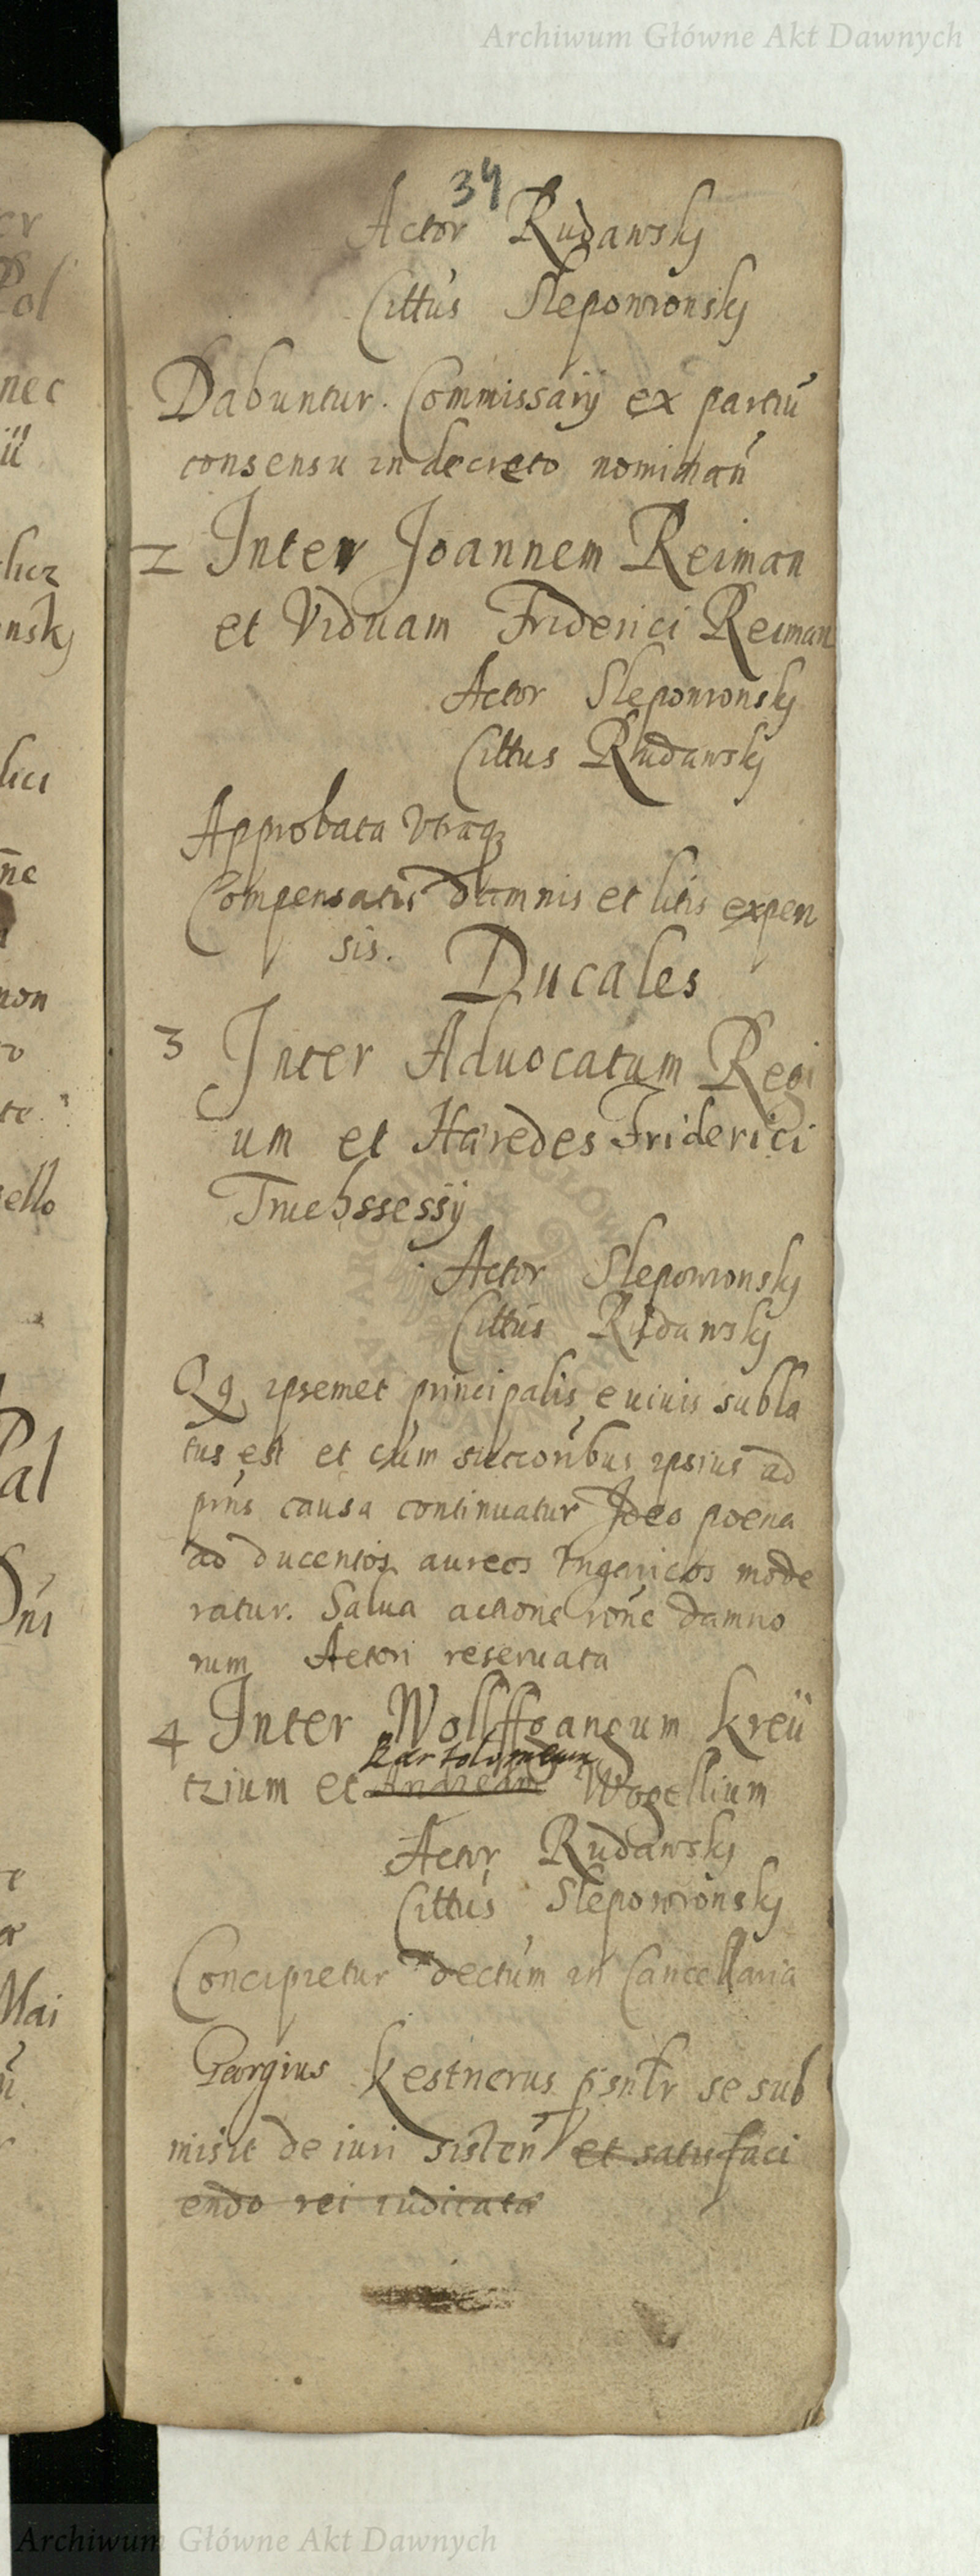 Archiwum Główne Akt Dawnych
34
Actor Rudawskÿ
Cittus Sleporonskÿ
Dabuntur. Commissarÿ ex partiu
consensu in decreto nominan
2 Inter Joannem Reiman
et Viduam Friderici Reiman
Actor Sleporonskÿ
Cittus Rudawskÿ
Approbata vtraq3
Compensatis damnis et litis expen
sis. Ducales
3 Inter Aduocatum Regi
um et Hæredes Friderici
Truchssessÿ
Actor Sleporonskÿ
Cittus Rudawskÿ
Qq ipsemet principalis e uiuis subla
tus est et cum successoribus ipsius ad
pns causa continuatur Ideo poena
ad ducentos aureos Vngaricos mode
ratur. Salua actione rone damno
rum Actori reseruata
4 Inter Wolffgangum Kreü
Bartolomeum
tzium et Andream Wogellium
Actor Rudawskÿ
Cittus Sleporonskÿ
Concipietur dectum in Cancellaria
Georgius Kestnerus psntr se sub
misit de iuri sisten et satisfaci
endo rei iudicatæ
er
Pol
nec
ü
nskÿ
lici
ne
non
te
ello
Pal
Dni
Mai
Archiwum Główne Akt Dawnych